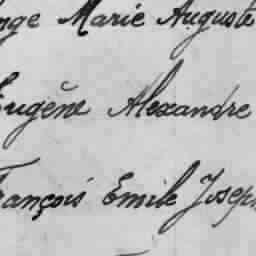 nge Marie Auguste
Eugène Alexandre
François Emile Joseph